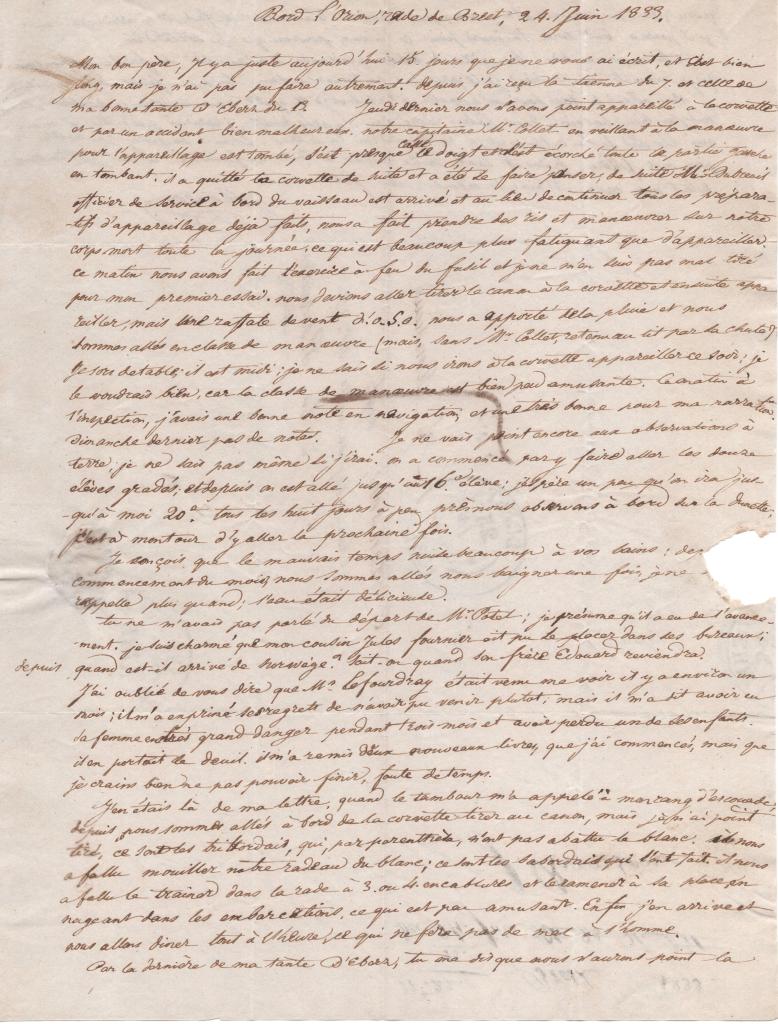 Bord l'Orion, rade de Brest, 24 Juin 1833.
Mon bon père, il y a juste aujourd'hui 15 jours que je ne vous ai écrit, et c'est bien
long, mais je n'ai pas pu faire autrement. depuis j'ai reçu la tienne du 7. et celle de
ma bonne tante D'Eberz du 12. Jeudi dernier nous n'avons point appareillé à la corvette
et par un accident bien malheureux. notre capitaine Mr. Collet, en veillant à la manœuvre
pour l'appareillage est tombé, s'est presque cassé le doigt et s'est écorché toute la partie gauche
en tombant. il a quitté la corvette de suite et a été se faire penser, de suite Mr. Dubreuil
officier de service à bord du vaisseau est arrivé et au lieu de continuer tous les prépara-
tifs d'appareillage déja faits, nous a fait prendre des ris et manœuvrer sur notre
corps-mort toute la journée; ce qui est beaucoup plus fatiguant que d'appareiller.
ce matin nous avons fait l'exercice à feu du fusil et je ne m'en suis pas mal tiré
pour mon premier essai. nous devions aller tirer le canon à la corvette et ensuite appa
reiller, mais une raffale de vent d'O.S.O. nous a apporté de la pluie et nous
sommes allés en classe de manœuvre (mais, sans Mr. Collet, retenu au lit par sa chute)
Je sors de table; il est midi; je ne sais si nous irons à la corvette appareiller ce soir; je
le voudrais bien, car la classe de manœuvre est bien peu amusante. Ce matin à
l'inspection, j'avais une bonne note en navigation, et une très bonne pour ma narration.
Dimanche dernier pas de notes. Je ne vais point encore aux observations à
terre, je ne sais pas même si j'irai. on a commencé par y faire aller les douze
élèves gradés; et depuis on est allé jusqu'au 16e. élève; j'espère un peu qu'on ira jus
qu'à moi 20e. tous les huit jours à peu près nous observons à bord sur la dunette,
c'est à mon tour d'y aller la prochaine fois.
Je conçois que le mauvais temps nuise beaucoup à vos bains;
commencement du mois, nous sommes allés nous baigner une fois, je ne
rappelle plus quand; l'eau était délicieuse.
tu ne m'avais pas parlé du départ de Mr. Potel; je présume qu'il a eu de l'avance-
ment. je suis charmé que mon cousin Jules fournier ait pu le placer dans ses bureaux;
depuis quand est-il arrivé de norwège? sait-on quand son frère Edouard reviendra.
J'ai oublié de vous dire que Mr. Lefourdrey était venu me voir il y a environ un
mois; il m'a exprimé ses regrets de n'avoir pu venir plutôt, mais il m'a dit avoir eu
sa femme en très grand danger pendant trois mois et avoir perdu un de ses enfants.
il en portait le deuil. il m'a remis deux nouveaux livres, que j'ai commencés, mais que
je crains bien ne pas pouvoir finir, faute de temps.
J'en étais là de ma lettre, quand le tambour m'a appelé à mon rang d'escouade;
depuis, nous sommes allés à bord de la corvette tirer au canon, mais je n'ai point
tiré, ce sont les tribordais, qui, par parenthèse, n'ont pas abattu le blanc, il nous
a fallu mouiller notre radeau du blanc; ce sont les babordais qui l'ont fait. il nous
a fallu le trainer dans la rade à 3. ou 4. encablures et le ramener à sa place en
nageant dans les embarcations, ce qui est peu amusant. Enfin j'en arrive et
nous allons diner tout à l'heure, ce qui ne fera pas de mal à l'homme.
Par la dernière de ma tante D'Eberz, tu me dis que nous n'aurons point la